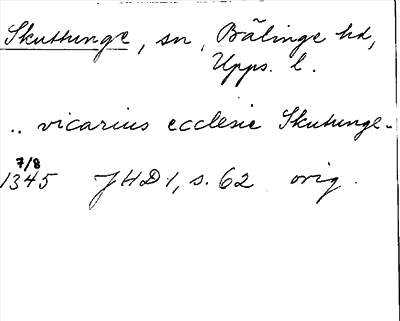 Skuttunge, sn, Bälinge hd,
Upps. l.
.. vicarius ecclesie Skutunge-
7/8
1345 JHD 1, s. 62 orig.